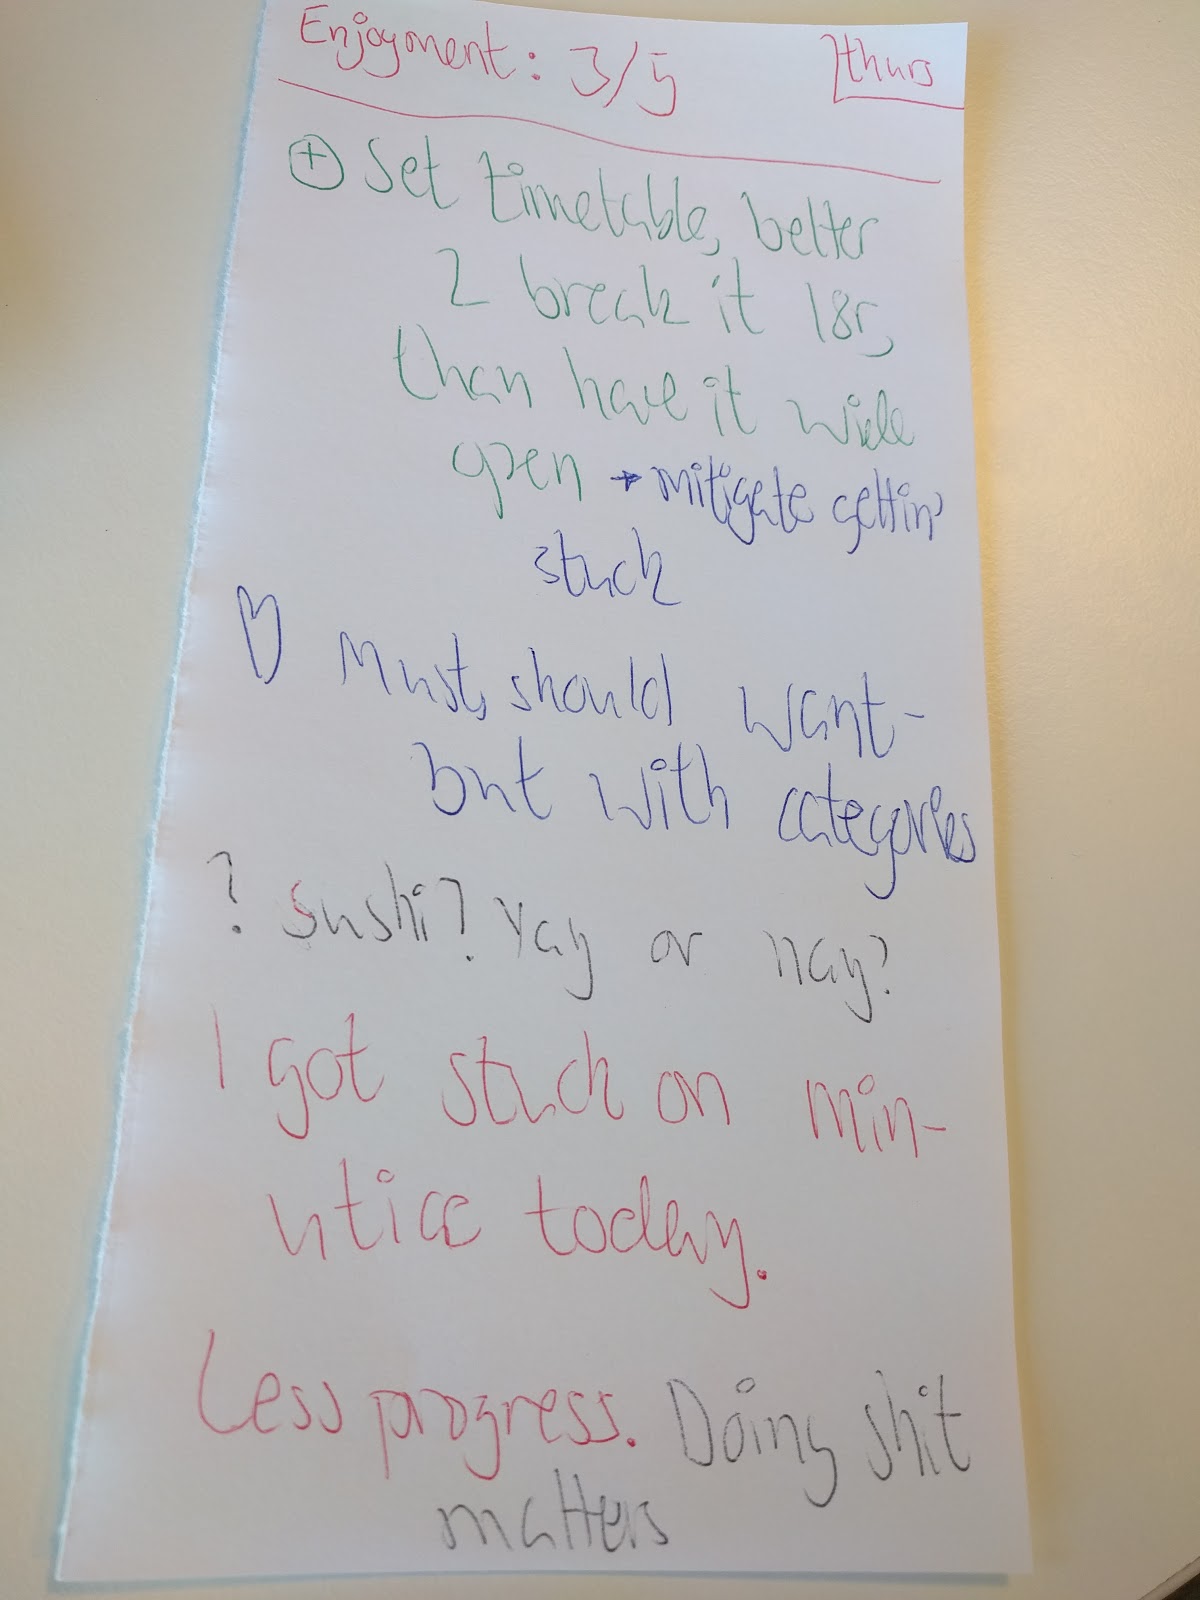 Enjoyment: 3/5
thurs
+ Set timetable, better
2 break it l8r,
than have it wide
open → mitigate gettin'
stuck
♡ Must, should want-
but with categories
? Sushi? Yay or nay?
I got stuck on min-
utiae today.
Less progress. Doing shit
matters